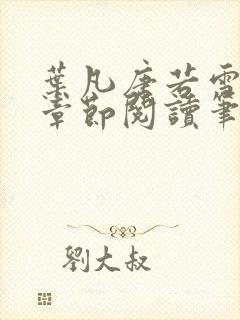 葉凡唐若雪
章節閱讀筆
劉大叔